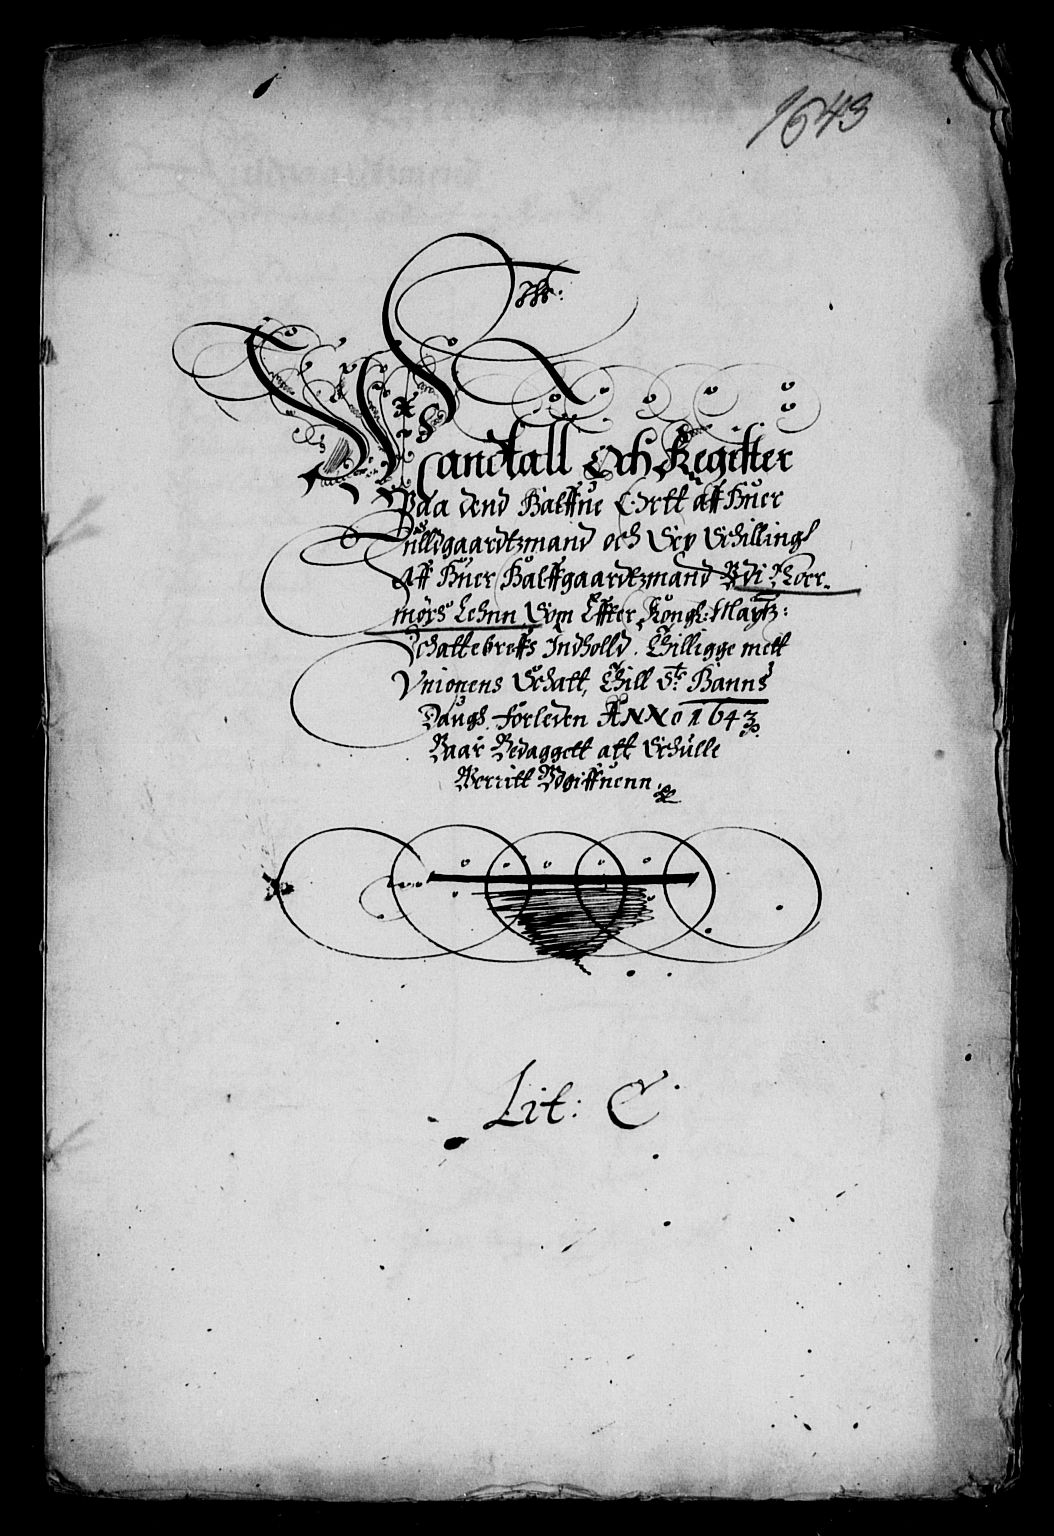 1643
Mandtall Och Register
Paa dend Halffue Ortt aff Huer
fulldgaardtzmand och Sex Schilling
Aff Huer Halffgaardtzmand Udi Noer-
mørs Lehnn Som Effter Kongl: Maytz:
Schattebreffs Indholld. Thilligge mett
Unionens Schatt, Thill St: Hanns
Daugs forleden ANNO 1643
Waar Bedaggett att Schulle
Werritt Wdgiffuenn.
Lit: C